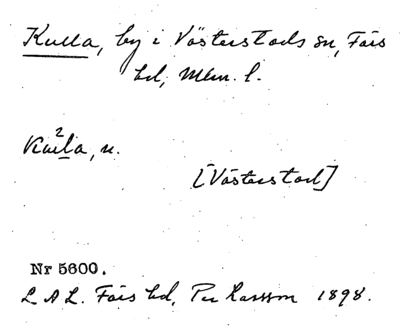 Kulla, by i Västerstads sn, Färs
hd, Mlm. l.
2
n.
[Västerstad]
Nr 5600.
L A L. Färs hd, Per Larsson 1898.